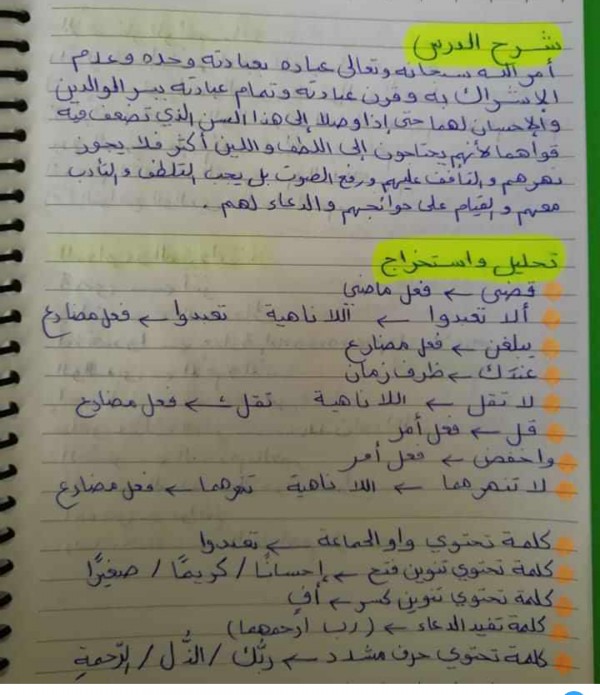 شرح الدرس
أمر الله سبحانه وتعالى عباده بعبادته وحده وعدم
الإشراك به وقرن عبادته وتمام عبادته ببر الوالدين
والإحسان لهما حتى إذا وصلا إلى هذا السن الذي تضعف فيه
قواهما لأنهم يحتاجون إلى اللطف واللين أكثر فلا يجوز
نهرهم والتأفف عليهم ورفع الصوت بل يجب التلطف والتأدب
معهم والقيام على حوائجهم والدعاء لهم .
تحليل واستخراج
قضى ← فعل ماضي
ألا تعبدوا ← اللا ناهية تعبدوا ← فعل مضارع
يبلغن ← فعل مضارع
عندك ← ظرف زمان
لا تقل ← اللا ناهية تقل ← فعل مضارع
قل ← فعل أمر
واخفض ← فعل أمر
لا تنهرهما ← اللا ناهية تنهرهما ← فعل مضارع
كلمة تحتوي واو الجماعة ← تعبدوا
كلمة تحتوي تنوين فتح ← إحسانًا / كريمًا / صغيرًا
كلمة تحتوي تنوين كسر ← أفٍ
كلمة تفيد الدعاء ← (رب ارحمهما)
كلمة تحتوي حرف مشدد ← ربُّك / الذُّل / الرّحمةِ